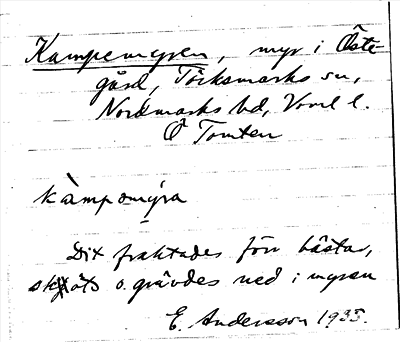 Kampemyren, myr i Öste-
gård, Töcksmarks sn,
Nordmarks hd, Vrml l.
Ö Tomten
kàmpomýra
Dit fraktades förr hästar,
sköts o. grävdes ned i myren
E. Andersson 1935.